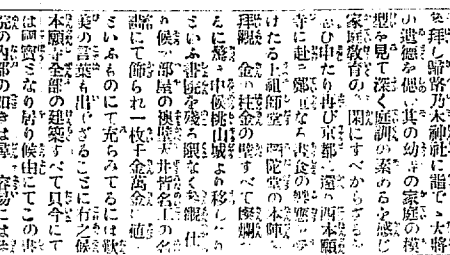 を拜し歸路乃木神社に詣でゝ大將
の遺德を偲び其の幼時の家庭の模
型を見て深く庭訓の素あるを感じ
家庭敎育の 閑にすべからざるを
び申たり再び京都に還り西本願
寺に赴き鄭重なる晝食の饗應
けたる上祖師堂 陀堂の本陣を
拜觀 金の柱金の壁すべて燦爛
に驚き申候桃山城より移した
といふ書院を殘る隈なく
り候が部屋の襖壁天井皆名工の名
畵にて飾られ一枚千金萬金に値
といふものにて充ちみてるには歎
美の言葉も出でざることに有之候
本願寺全部の建築すべて只今にて
は國寳となり居り候由にてこの書
院の内部の如きは 容易には